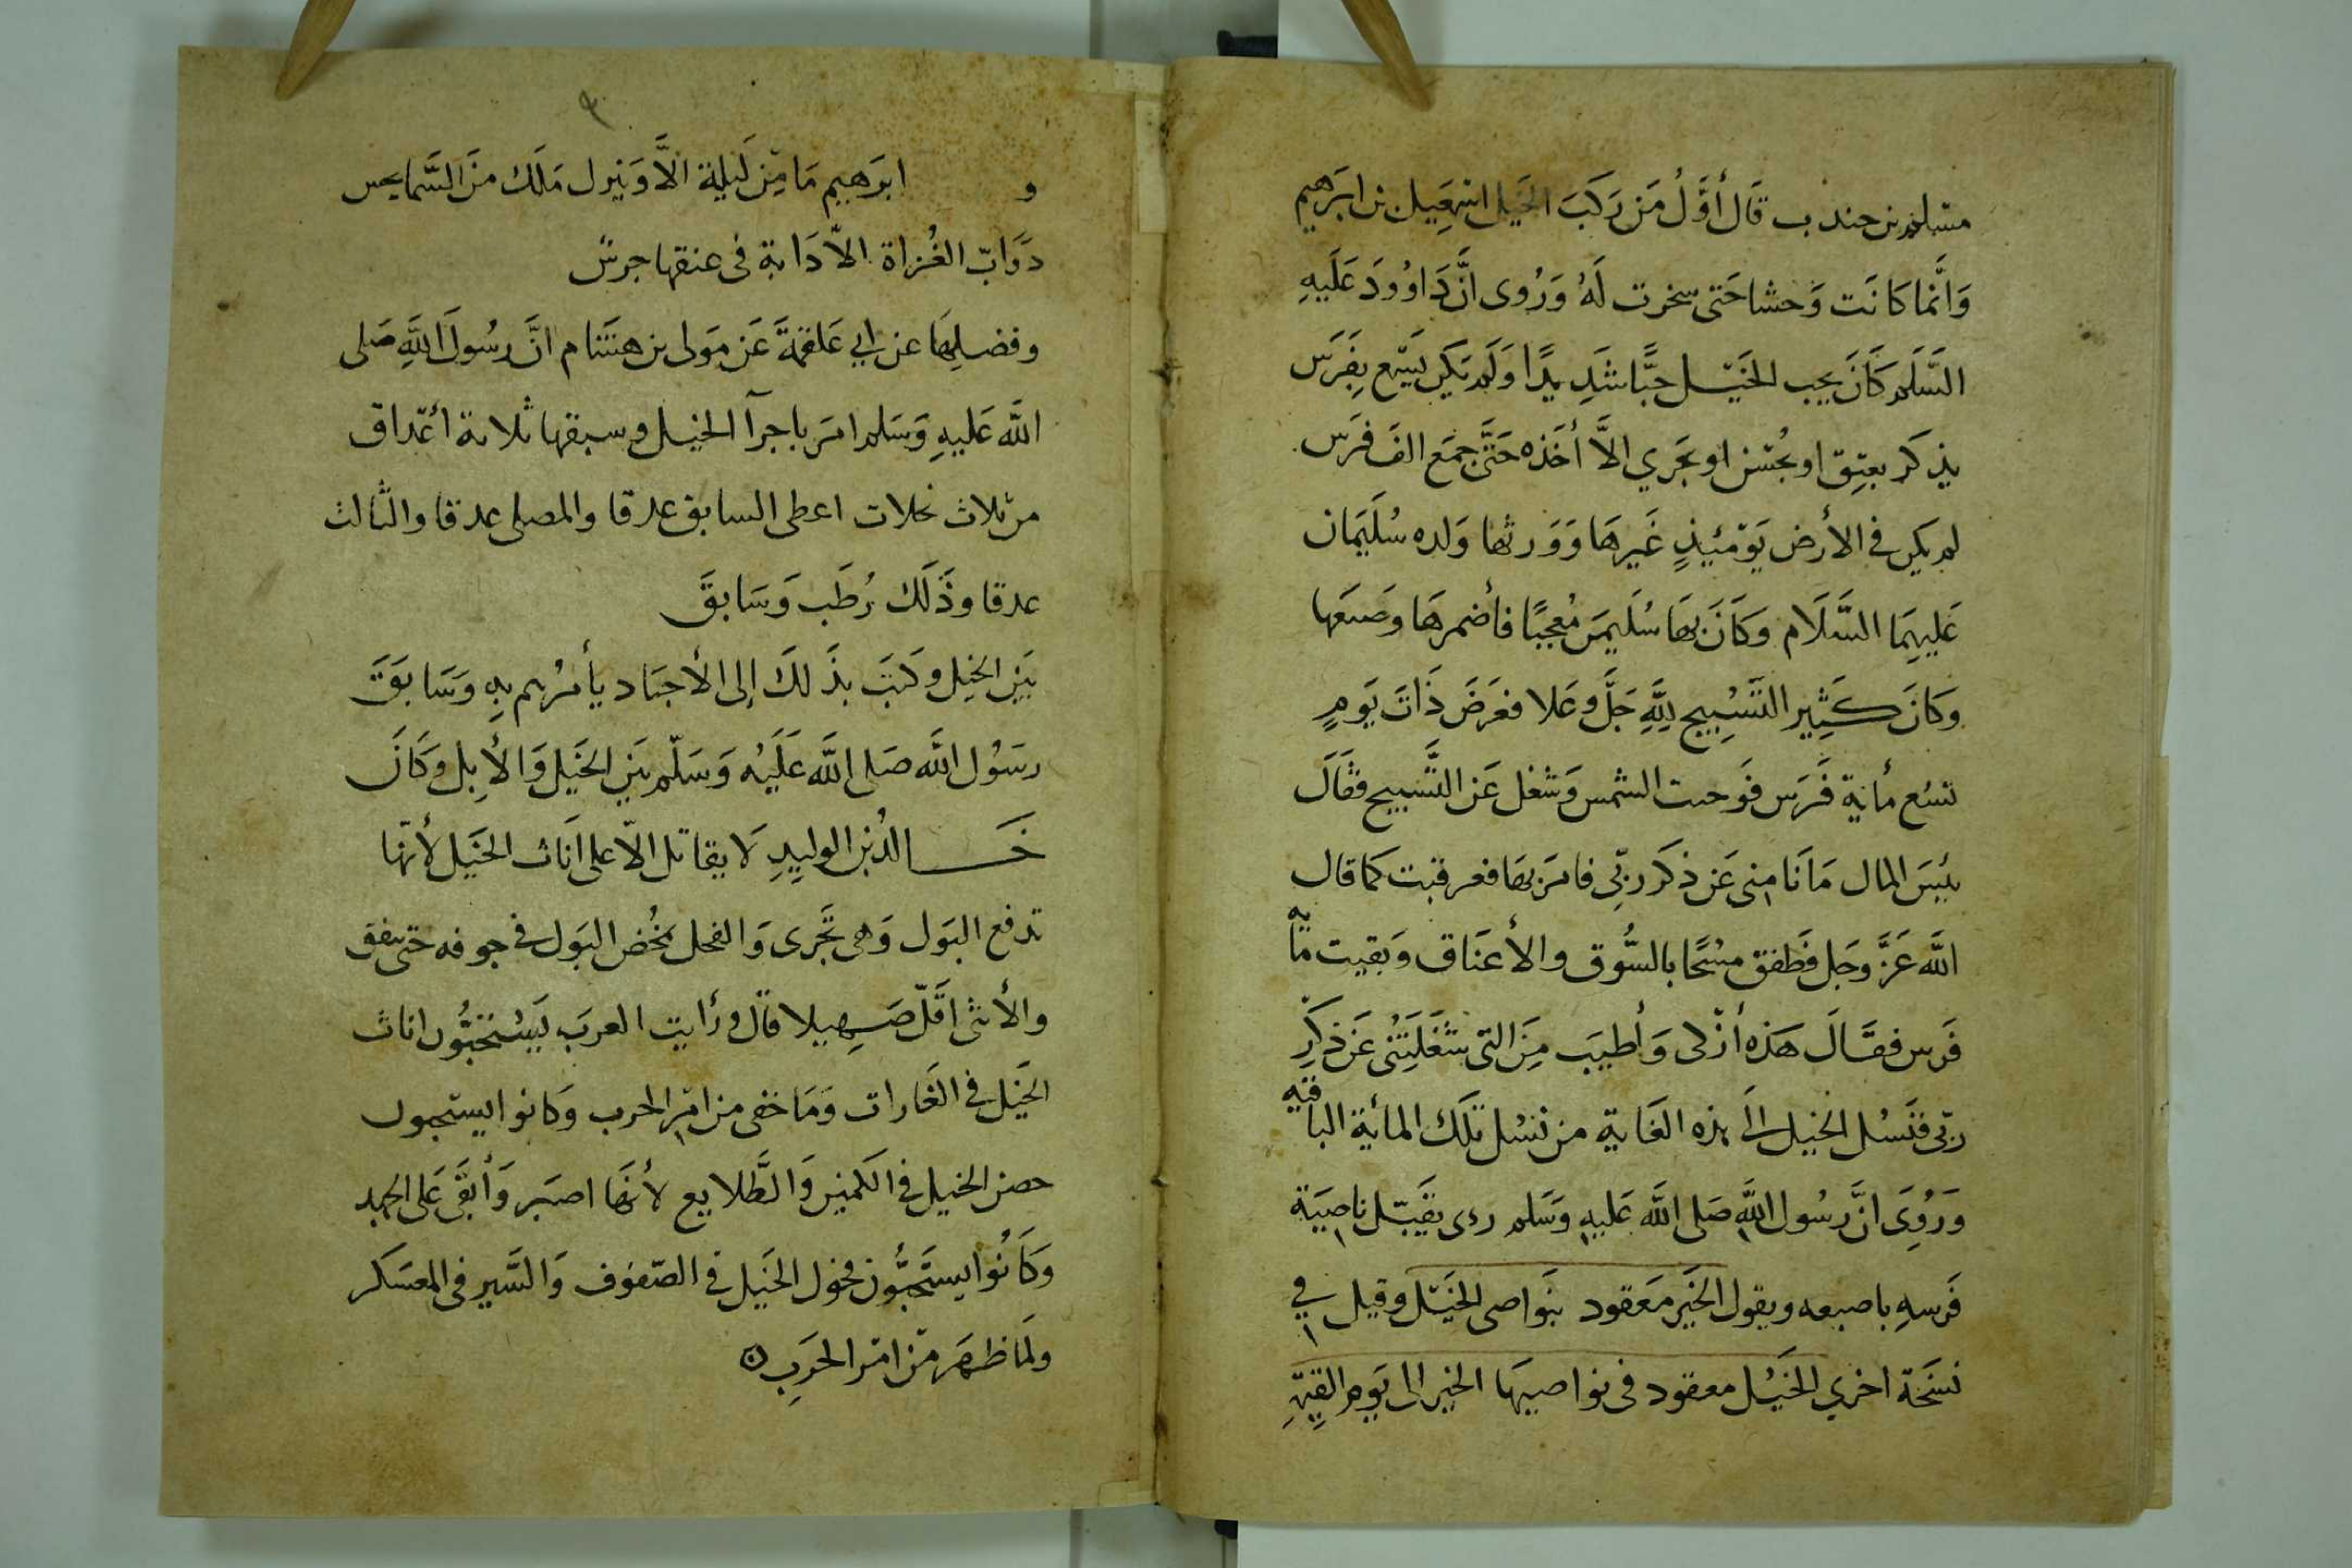 مسلم بن جندب قَال أوَّلُ مَن رَكَبَ الخَيل اسمعِيل بن ابرَهيم
وَانَّما كَانَت وَحشا حَتى سخرت لَهُ وَرُوى انَّ دَاوُودَ عَلَيهِ
السَّلَم كَانَ يحب الخَيْل حبًّا شَدِيدًا وَلَم يَكن يَسمَع بِفَرَس
يذكر بعتِق او بحُسْن او بجَري الاَّ أخَذه حَتَّى جمَع الفَ فَرَس
لم يكن فى الأرض يَوْمَئِذٍ غَيرهَا وَوَرثها وَلده سُلَيمَان
عَليهِمَا السَّلَام وَكَانَ بهَا سُلَيمَن مُعجبًا فأضمرهَا وصَنعَها
وكانَ كَثِير التَسبِيح لِلَّهِ جَلَّ وعَلا فعَرَضَ ذَاتَ يَومٍ
تسْع مأية فَرَس فَوَجبت الشمس وَشغل عَن التَّسبيح فقَالَ
بئِسَ المال مَا انَا منى عَن ذكر ربّى فامَر بهَا فعرقبت كما قال
اللَّه عَزَّ وجَل فَطفق مسْحًا بالسُّوق والأعنَاق وَبقيت مَأية
فَرَس فقَالَ هَذه أزكى وَأطيَب مِنَ التى شَغَلَتْنى عَن ذكر
ربّى فنَسْل الخيل الَى هذه الغَاية من نسْل تلك المائة الباقيه
وَرُوِىَ انَّ رسُول اللَّه صَلى اللَّه عَليهِ وَسَلم رءى يقَبّل ناصِيَة
فَرسهِ باصبعه ويقول الخَير مَعقود بنَواصى الخَيْل وقيل في
نسَخَة اخري الخَيْل معقود فى نواصيهَا الخير الى يَوم القيمَة
٩
و ابرَهيم مَا مِن لَيلة الاَّ وَينزل مَلَك منَ السَّماء يحس
دوَابّ الغُزاة الاّ دَابة فى عنقها جرسٌ
وفضلِهَا عن ابي عَلقمَة عَن مَولى بن هشَام انَّ رسُولَ اللَّهِ صَلى
اللَّه عَليهِ وَسَلم امَر باجرآ الخيل وسبقها ثلاثة أعْداق
من ثلاث نخلات اعطى السابق عدقا والمصلى عدقا والثَّالث
عدقا وذَلك رُطَب وَسَابقَ
بَين الخيل وكتَب بذَلكَ إلى الأجنَاد يأمرُهم بهِ وَسَابَقَ
رسُول اللَّه صَلى اللَّه عَلَيْه وَسَلّم بَين الخَيل وَالأبِل وكَانَ
خَالدُ بن الوليدِ لَا يقاتل الاّ على انَاث الخَيل لأنّها
تدفع البَول وَهى تجَرى وَالفحل يحُض البَول فى جوفه حَتى ينفق
والأنثى اقَلّ صَهِيلا قال وَرأيت العرَب يَسْتحبُّون اناث
الخَيل فى الغَارات وَمَا خفى من امْر الحرب وَكانوا يستحبون
حصن الخيل فى الكَمين وَالطَّلايع لأنهَا اصبَر وَأبقَى عَلى الجهد
وَكَانُوا يستَحبُّون فحول الخَيل فى الصّفوف وَالسَّير فى المعسَكر
ولمَا ظهَر مَن امْر الحَرَبِ